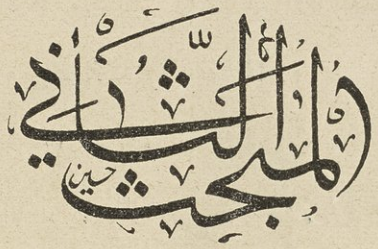 المبحث الثاني
حسين